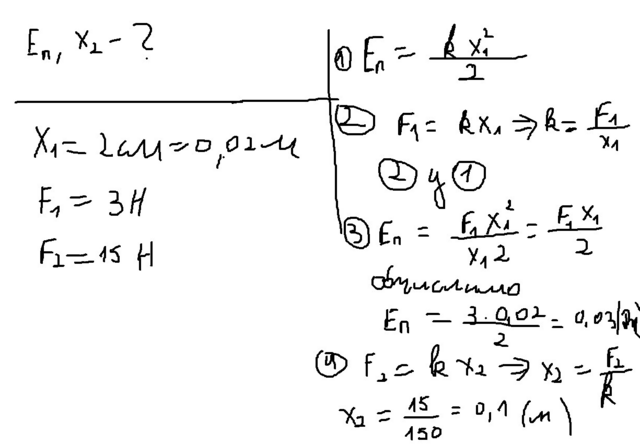 Eп, x₂ - ?
x₁ = 2 см = 0,02 м
F₁ = 3 Н
F₂ = 15 Н
① Eп = k x₁² / 2
② F₁ = k x₁ ⇒ k = F₁ / x₁
② у ①
③ Eп = F₁ x₁² / x₁ 2 = F₁ x₁ / 2
обчислимо
Eп = 3·0,02 / 2 = 0,03 (Дж)
④ F₂ = k x₂ ⇒ x₂ = F₂ / k
x₂ = 15 / 150 = 0,1 (м)